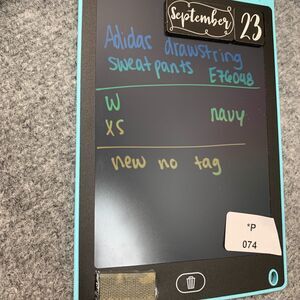 September 23
Adidas drawstring
sweatpants E76048
W
navy
XS
new no tag
"P
074